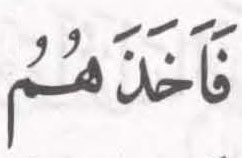 فَاَخَذَهُمُ